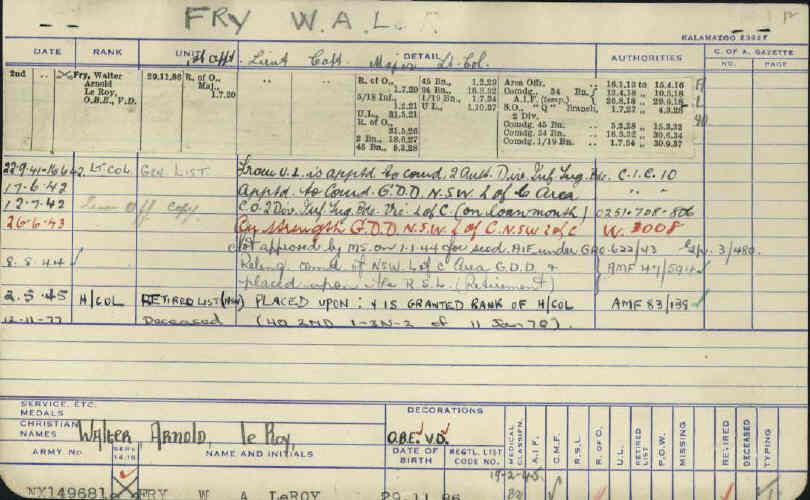 FRY W. A. L.
KALAMAZOO
DATE RANK UNIT DETAIL AUTHORITIES C. OF A. GAZETTE
NO. PAGE
Staff. Lieut Capt. Major Lt-Col.
2nd .. Fry, Walter Arnold Le Roy, O.B.E., V.D. 29.11.86
R. of O., Maj., 1.7.20
R. of O., 1.7.20
5/18 Inf., 1.2.21
U.L., 31.5.21
R. of O., 21.5.26
2 Bn., 18.6.27
45 Bn., 5.3.28
45 Bn., 1.3.29
34 Bn., 16.3.32
1/19 Bn., 1.7.34
U.L., 1.10.37
Area Offr. .. 16.1.13 to 15.4.16
Comdg. 34 Bn. 13.4.18 „ 10.5.18
A.I.F. (temp.) 26.8.18 „ 29.9.18
S.O., "Q" Branch, 2 Div. 1.7.27 „ 4.3.28
Comdg. 45 Bn. .. 5.3.28 „ 15.3.32
Comdg. 34 Bn. .. 16.3.32 „ 30.6.34
Comdg. 1/19 Bn. .. 1.7.34 „ 30.9.37
22-9-41 - 16.6.42 Lt COL Gen LIST From U.L. is apptd to comd. 2 Aust. Div. Inf. Trg. Bde. C.I.C. 10
17-6-42 Apptd. to Comd. G.D.D. N.S.W. L of C Area „ „
12.7.42 C.O. 2 Div. Inf. Trg. Bde. Vic L of C (on loan month) 0251.708-806
26-6-43 Cy strength G.D.D. N.S.W. L of C. N.S.W. L of C W. 3008
Not approved by MS. on 1.1.44 for secd. A.I.F. under GRO.622/43 3/480
8.8.44 Relinq. comd of NSW L of C Area G.D.D. & AMF 47/594
placed upon the R.S.L. (Retirement)
2.5.45 H/COL RETIRED LIST (NSW) PLACED UPON: & IS GRANTED RANK OF H/COL AMF 83/138
12-11-77 Deceased (HQ 2MD 1-3N-2 of 11 Jan 78).
SERVICE, ETC. MEDALS
DECORATIONS
CHRISTIAN NAMES Walter Arnold, le Roy, O.B.E. V.D.
ARMY No. SERV. 14-18 NAME AND INITIALS DATE OF BIRTH REGTL. LIST CODE NO.
MEDICAL CLASSIFN. A.I.F. C.M.F. R.S.L. R. OF O. U.L. RETIRED LIST P.O.W. MISSING RETIRED DECEASED TYPING
NX149681 FRY W. A LeROY 29.11.86 19-2-45